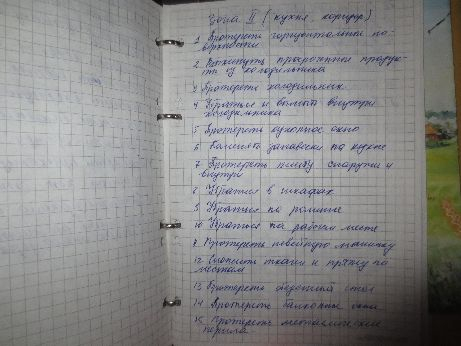 Зона II (кухня, коридор)
1 Протереть горизонтальные по-
верхности
2 Выкинуть просроченные продук-
ты из холодильника
3 Протереть холодильник
4 Убраться и вымыть внутри
холодильника
5 Протереть кухонное окно
6 Поменять занавески на кухне
7 Протереть плиту снаружи и
внутри
8 Убраться в шкафах
9 Убраться по
10 Убраться на рабочем месте
11 Протереть швейную машинку
12 ткани и пряжу по
местам
13 Протереть обеденный стол
14 Протереть балконные окна
15 Протереть металлические
перила